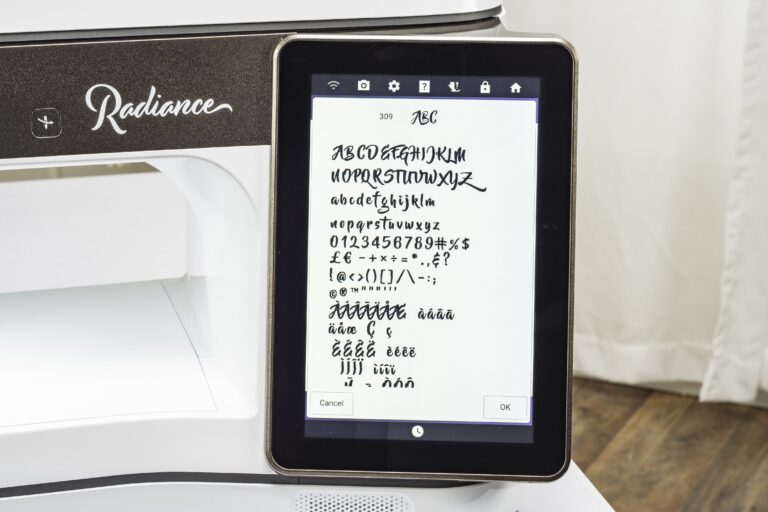 Radiance
309 ABC
ABCDEFGHIJKLM
NOPQRSTUVWXYZ
abcdefghijklm
nopqrstuvwxyz
0123456789#%$
£€-+×÷=*.,&?
!@<>()[]/\-:;
©®™"""'''
àáâã
äåæ Ç ç
ÈÉÊË èéêë
ÌÍÎÏ ìíîï
Cancel
OK